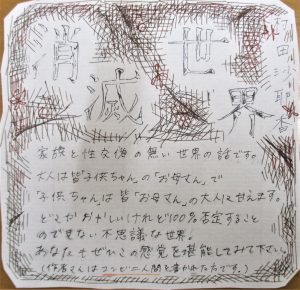 村田沙耶香
消滅世界
家族と性交渉の無い世界の話です。
大人は皆「子供ちゃん」の「お母さん」で
「子供ちゃん」は皆「お母さん」の大人に甘えます。
どこかおかしいけれど100%否定すること
ので見ない不思議な世界。
あなたもぜひこの感覚を堪能してみて下さい。
(作者さんはコンビニ人間を書かれた方です。)